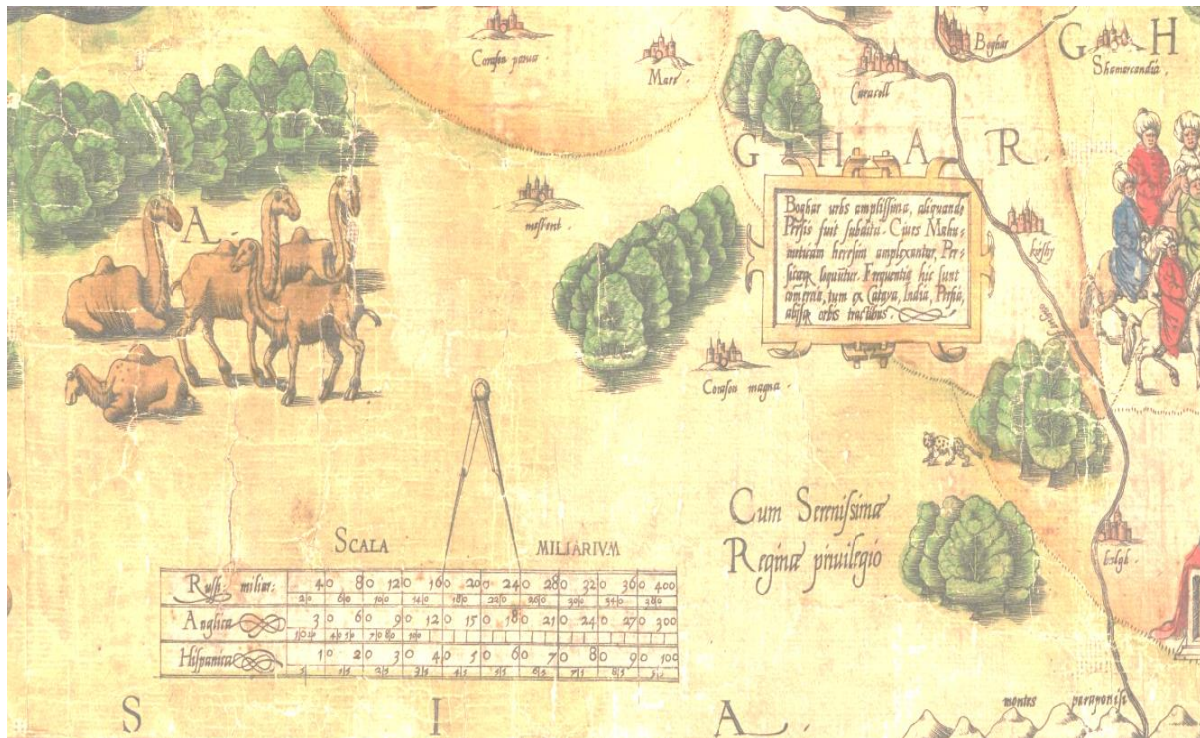 Corason parua.
Mare.
Boghar
G H
Shamarcandia.
Caracoll
G H A R.
A.
mesbent.
Boghar urbs amplissima, aliquando
Persis fuit subdita. Ciues Mahu=
meticam heresim amplexantur, Per=
sicaq; loquūtur. Frequentia hic sunt
comertia, tum ex Cataya, India, Persia,
alijsq; orbis tractibus.
kirshy
Corason magna.
Cum Serenissimæ
Reginæ priuilegio
balgh.
SCALA MILIARIVM
Russi. miliar: 40 80 120 160 200 240 280 320 360 400
Anglica 30 60 90 120 150 180 210 240 270 300
Hispanica 10 20 30 40 50 60 70 80 90 100
S I A.
montes paraponisi